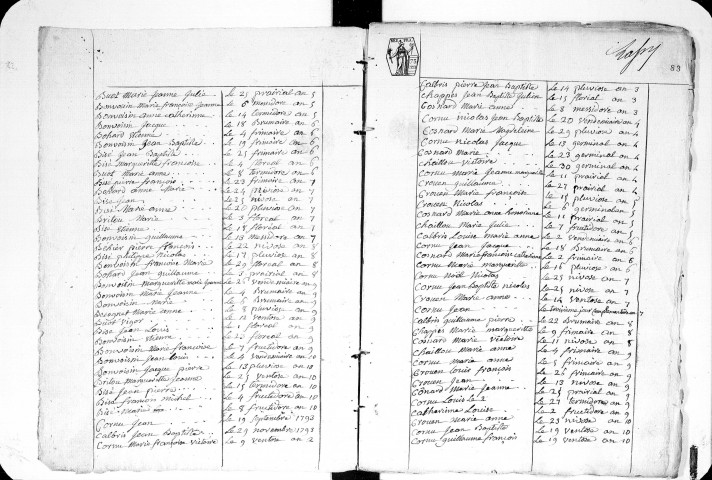 Buet Marie jeanne Julie le 25 prairial an 5
Bonvoisin Marie françoise jeanne le 6 messidor an 5
Bonvoisin anne catherinne le 14 termidor an 5
Bonvoisin Jacque le 18 Brumaire an 6
Bohard Etienne le 4 frimaire an 6
Bonvoisin Jean Baptiste le 19 frimaire an 6
Bisé Jean Baptiste le 25 frimaire an 6
Bisé Marguerite françoise le 4 floreal an 6
Buet Marie anne le 8 termidor an 6
françois le 23 frimaire an 7
Bohard anne Marie le 21 nivose an 7
Bisé Jean le 25 nivose an 7
Bisé Marie anne le 20 pluviose an 7
Brileu Marie le 3 floreal an 7
Bisé Etienne le 18 floreal an 7
Bonvoisin guillaume le 13 messidor an 7
Bihier pierre françois le 22 nivose an 8
Bisé philippe Nicolas le 17 pluviose an 8
Bonvoisin françoise Marie le 20 floreal an 8
Bohard Jean guillaume le 5 prairial an 8
Bonvoisin Marguerite le 26 vendemiaire an 9
Bonvoisin Marie Jeanne le 4 Brumaire an 9
Bonvoisin Marie le 6 Brumaire an 9
Becquet Marie anne le 8 nivose an 9
Buet Victor le 12 ventose an 9
Bisé Jean Louis le 1 floreal an 9
Bonvoisin Etienne le 23 floreal an 9
Bonvoisin Marie françoise le 7 fructidor an 9
Bonvoisin Jean Louis le 4 vendemiaire an 10
Bonvoisin Jacque pierre le 13 pluviose an 10
Brileu Marguerite Jeanne le 25 ventose an 10
Bisé Jean pierre le 15 termidor an 10
Bisé françois michel le 4 fructidor an 10
Bisé Marie le 8 fructidor an 10
Cornu Jean le 19 septembre 1793
Calbris Jean Baptiste le 29 novembre 1793
Cornu Marie françoise victoire le 9 ventose an 2
83
Calbris pierre Jean Baptiste le 14 pluviose an 3
Chappés Jean Baptiste Julien le 15 floreal an 3
Cosnard Marie anne le 8 messidor an 3
Cornu nicolas Jean Baptiste le 20 vendemiaire an 4
Cosnard Marie Magdeleine le 29 pluviose an 4
Cornu nicolas Jacque le 13 germinal an 4
Cosnard Marie le 23 germinal an 4
Chaillou victoire le 30 germinal an 4
Cornu marie jeanne marguerite le 11 prairial an 4
Crouen guillaume le 27 prairial an 4
Crouen Marie françoise le 15 pluviose an 5
Crouen Nicolas le 6 germinal an 5
Cosnard Marie anne le 11 prairial an 5
Chaillou Marie Julie le 7 fructidor an 5
Calbris Louise Marie anne le 2 vendemiaire an 6
Cornu Jean Jacque le 18 Brumaire an 6
Cosnard Marie françoise catherinne le 2 frimaire an 6
Cornu Marie marguerite le 16 pluviose an 6
Cornu Noël Nicolas le 25 nivose an 7
Cornu Jean Baptiste nicolas le 25 nivose an 7
Crouen Marie anne le 14 ventose an 7
Cornu Jean le troisieme jour complementaire an 7
Calbris guillaume pierre le 22 Brumaire an 8
Chappés Marie marguerite le 9 frimaire an 8
Cosnard Marie victoire le 11 nivose an 8
Chaillou Marie anne le 4 frimaire an 9
Cornu Marie anne le 5 frimaire an 9
Crouen Louis françois le 26 frimaire an 9
Crouen Jean le 13 nivose an 9
Cosnard Marie Jeanne le 25 prairial an 9
Cornu Louis le 2 le 27 termidor an 9
Catherine Louise le 2 fructidor an 9
Crouen Marie anne le 23 nivose an 10
Cornu Jean Baptiste le 19 ventose an 10
Cornu guillaume françois le 19 ventose an 10